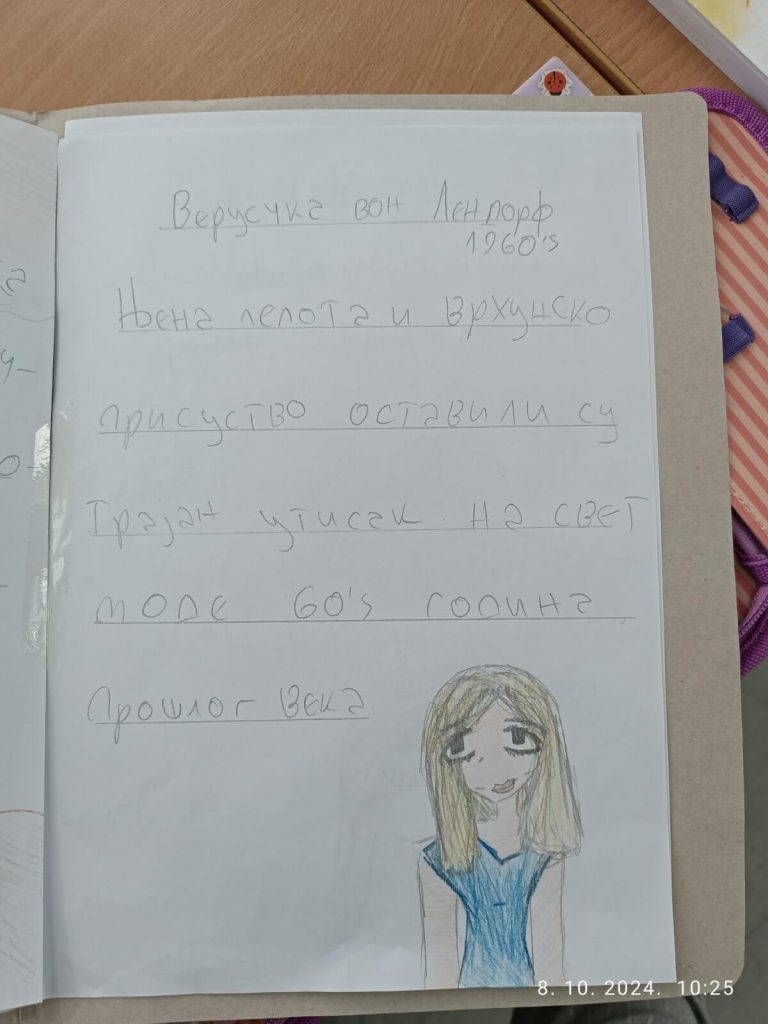 Верусчка вон Лендорф
1960's
Њена лепота и врхунско
присуство оставили су
трајан утисак на свет
моде 60's година
прошлог века.
8. 10. 2024. 10:25